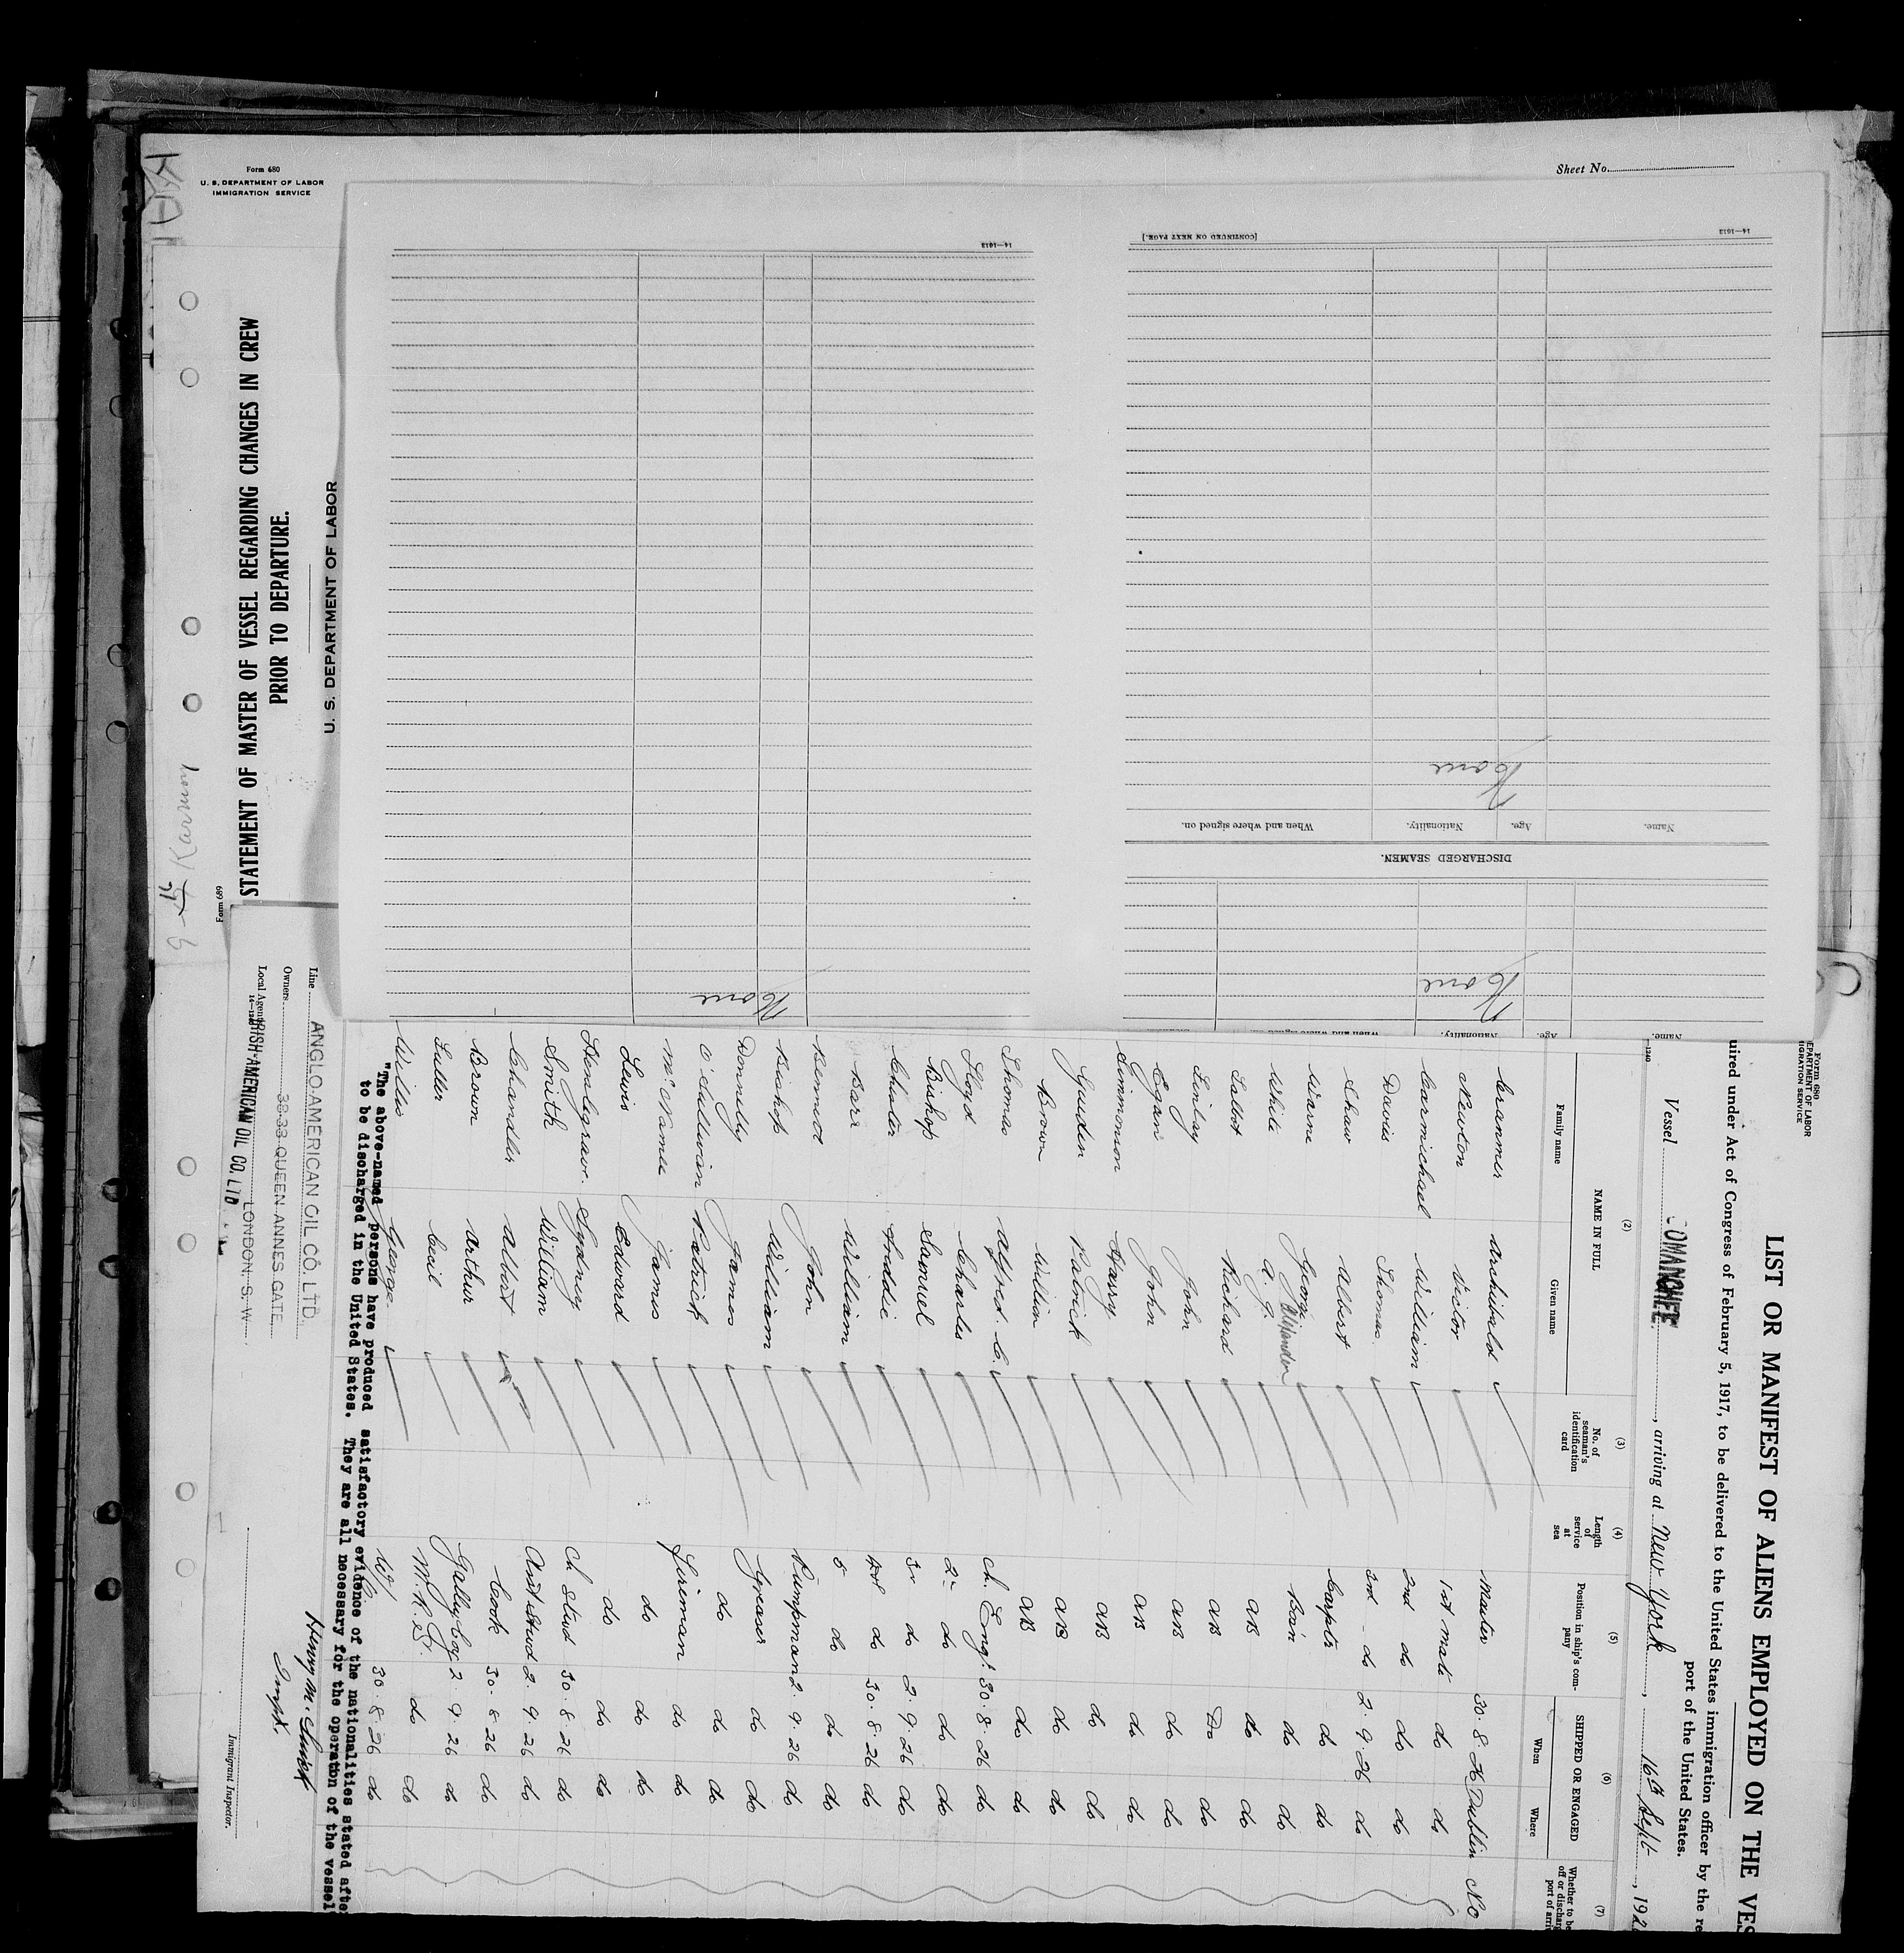 Form 680
U. S. DEPARTMENT OF LABOR
IMMIGRATION SERVICE
Sheet No.
STATEMENT OF MASTER OF VESSEL REGARDING CHANGES IN CREW
PRIOR TO DEPARTURE.
U. S. DEPARTMENT OF LABOR
Form 689
9-
Karrman
14—1613
[CONTINUED ON NEXT PAGE.]
14—1613
None
Name.
Age.
Nationality.
When and where signed on.
DISCHARGED SEAMEN.
None
None
Name.
Age.
Nationality.
When and where signed on.
Form 680
DEPARTMENT OF LABOR
IGRATION SERVICE
LIST OR MANIFEST OF ALIENS EMPLOYED ON THE VES
uired under Act of Congress of February 5, 1917, to be delivered to the United States immigration officer by the re
port of the United States.
Vessel COMANCHEE, arriving at New York, 16th Sept, 192
(2) (3) (4) (5) (6) (7)
NAME IN FULL
Family name Given name
No. of seaman's identification card
Length of service at sea
Position in ship's com-pany
SHIPPED OR ENGAGED
When Where
Whether to be off or discharg port of arri
Cranmer Archibald Master 30.8.26 Dublin No
Newton Victor 1st mate do do
Carmichael William 2nd do do do
Davis Thomas 3rd do 2.9.26 do
Shaw Albert Carptr do do
Warne George Alexander do do
White A. J. AB do do
Talbot Richard AB Do do
Linlay John AB do do
Egan John AB do do
Simmonson Harry AB do do
Patrick AB do do
Brown William AB do do
Thomas Alfred C. Ch. Engr. 30.8.26 do
Lloyd Charles 2nd do do do
Bishop Samuel 3r do 2.9.26 do
Freddie 4th do 30.8.26 do
Barr William 5 do do do
John Pumpman 2.9.26 do
Bishop William Greaser do do
Donnelly James do do do
O'Sullivan Patrick Fireman do do
McNamee James do do do
Lewis Edward do do do
Sydney Ch Stwd 30.8.26 do
Smith William Asst Stwd 2.9.26 do
Chandler Albert Cook 30.8.26 do
Brown Arthur Galley boy 2.9.26 do
Cecil do do
Willis George 30.8.26 do
"The above-named persons have produced satisfactory evidence of the nationalities stated afte
to be discharged in the United States. They are all necessary for the operation of the vessel
Line ANGLO-AMERICAN OIL CO. LTD.
Owners 36-38 QUEEN ANNES GATE
LONDON. S. W.
Local Agents
14—1240
AMERICAN OIL CO. LTD.
Henry M.
Inspr.
Immigrant Inspector.